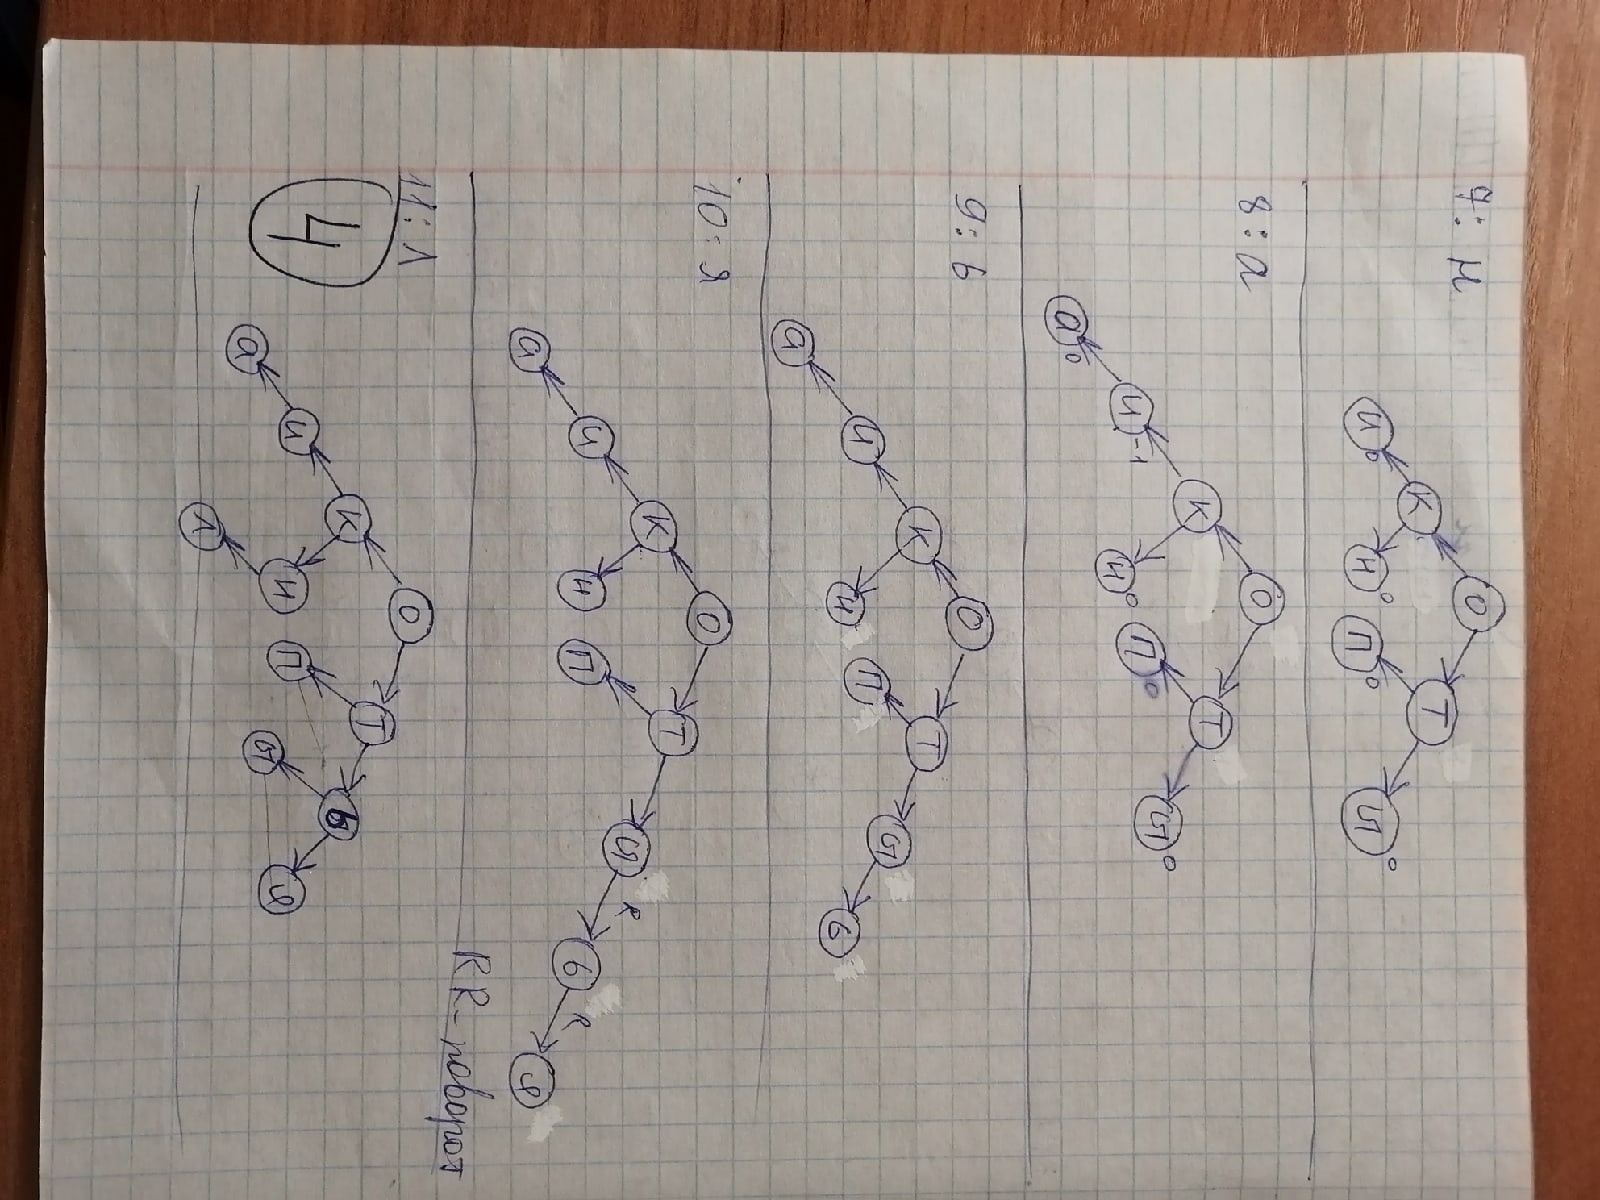 7: н
О
К Т
и 0 н 0 п 0 ы 0
8: а
О
К Т
и -1 н 0 п 0 ы 0
а 0
9: ь
О
К Т
и н п ы ь
а
10: я
О
К Т
и н п ы R ь R я
а
RR-поворот
11: л
О
К Т
и н п ь
а л ы я
4